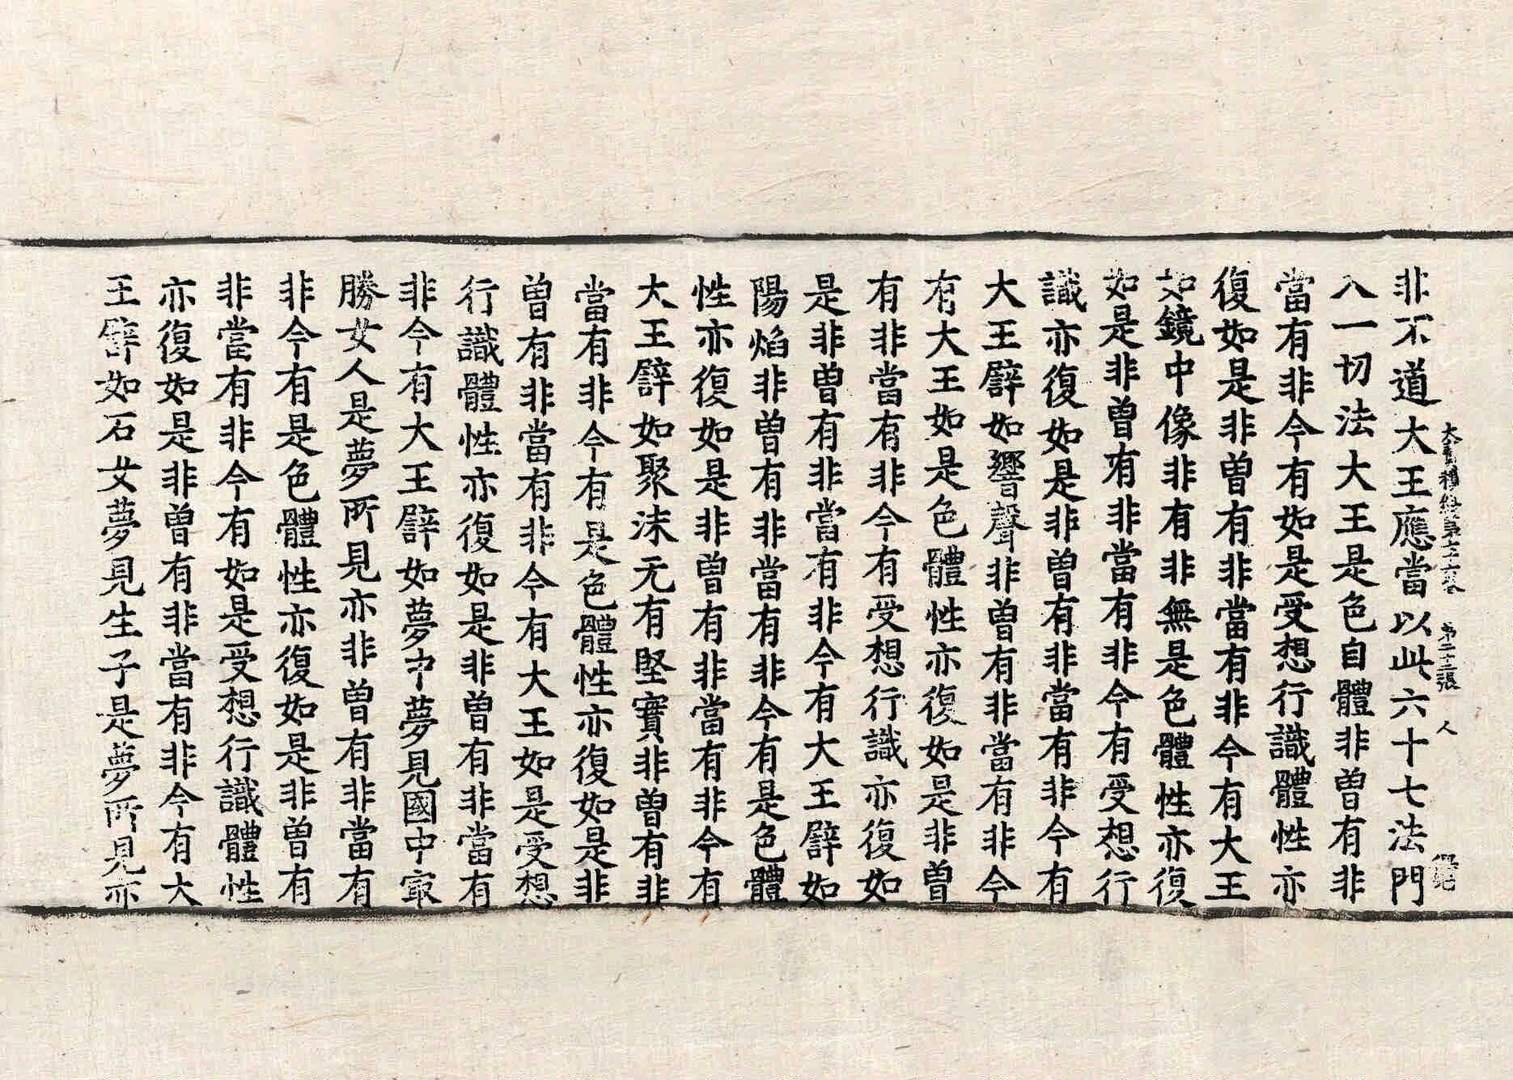 大寶積經第七十六卷 第二十三張 人
非不道大王應當以此六十七法門
入一切法大王是色自體非曾有非
當有非今有如是受想行識體性亦
復如是非曾有非當有非今有大王
如鏡中像非有非無是色體性亦復
如是非曾有非當有非今有受想行
識亦復如是非曾有非當有非今有
大王譬如響聲非曾有非當有非今
有大王如是色體性亦復如是非曾
有非當有非今有受想行識亦復如
是非曾有非當有非今有大王譬如
陽焰非曾有非當有非今有是色體
性亦復如是非曾有非當有非今有
大王譬如聚沫无有堅實非曾有非
當有非今有是色體性亦復如是非
曾有非當有非今有大王如是受想
行識體性亦復如是非曾有非當有
非今有大王譬如夢中夢見國中㝡
勝女人是夢所見亦非曾有非當有
非今有是色體性亦復如是非曾有
非當有非今有如是受想行識體性
亦復如是非曾有非當有非今有大
王譬如石女夢見生子是夢所見亦